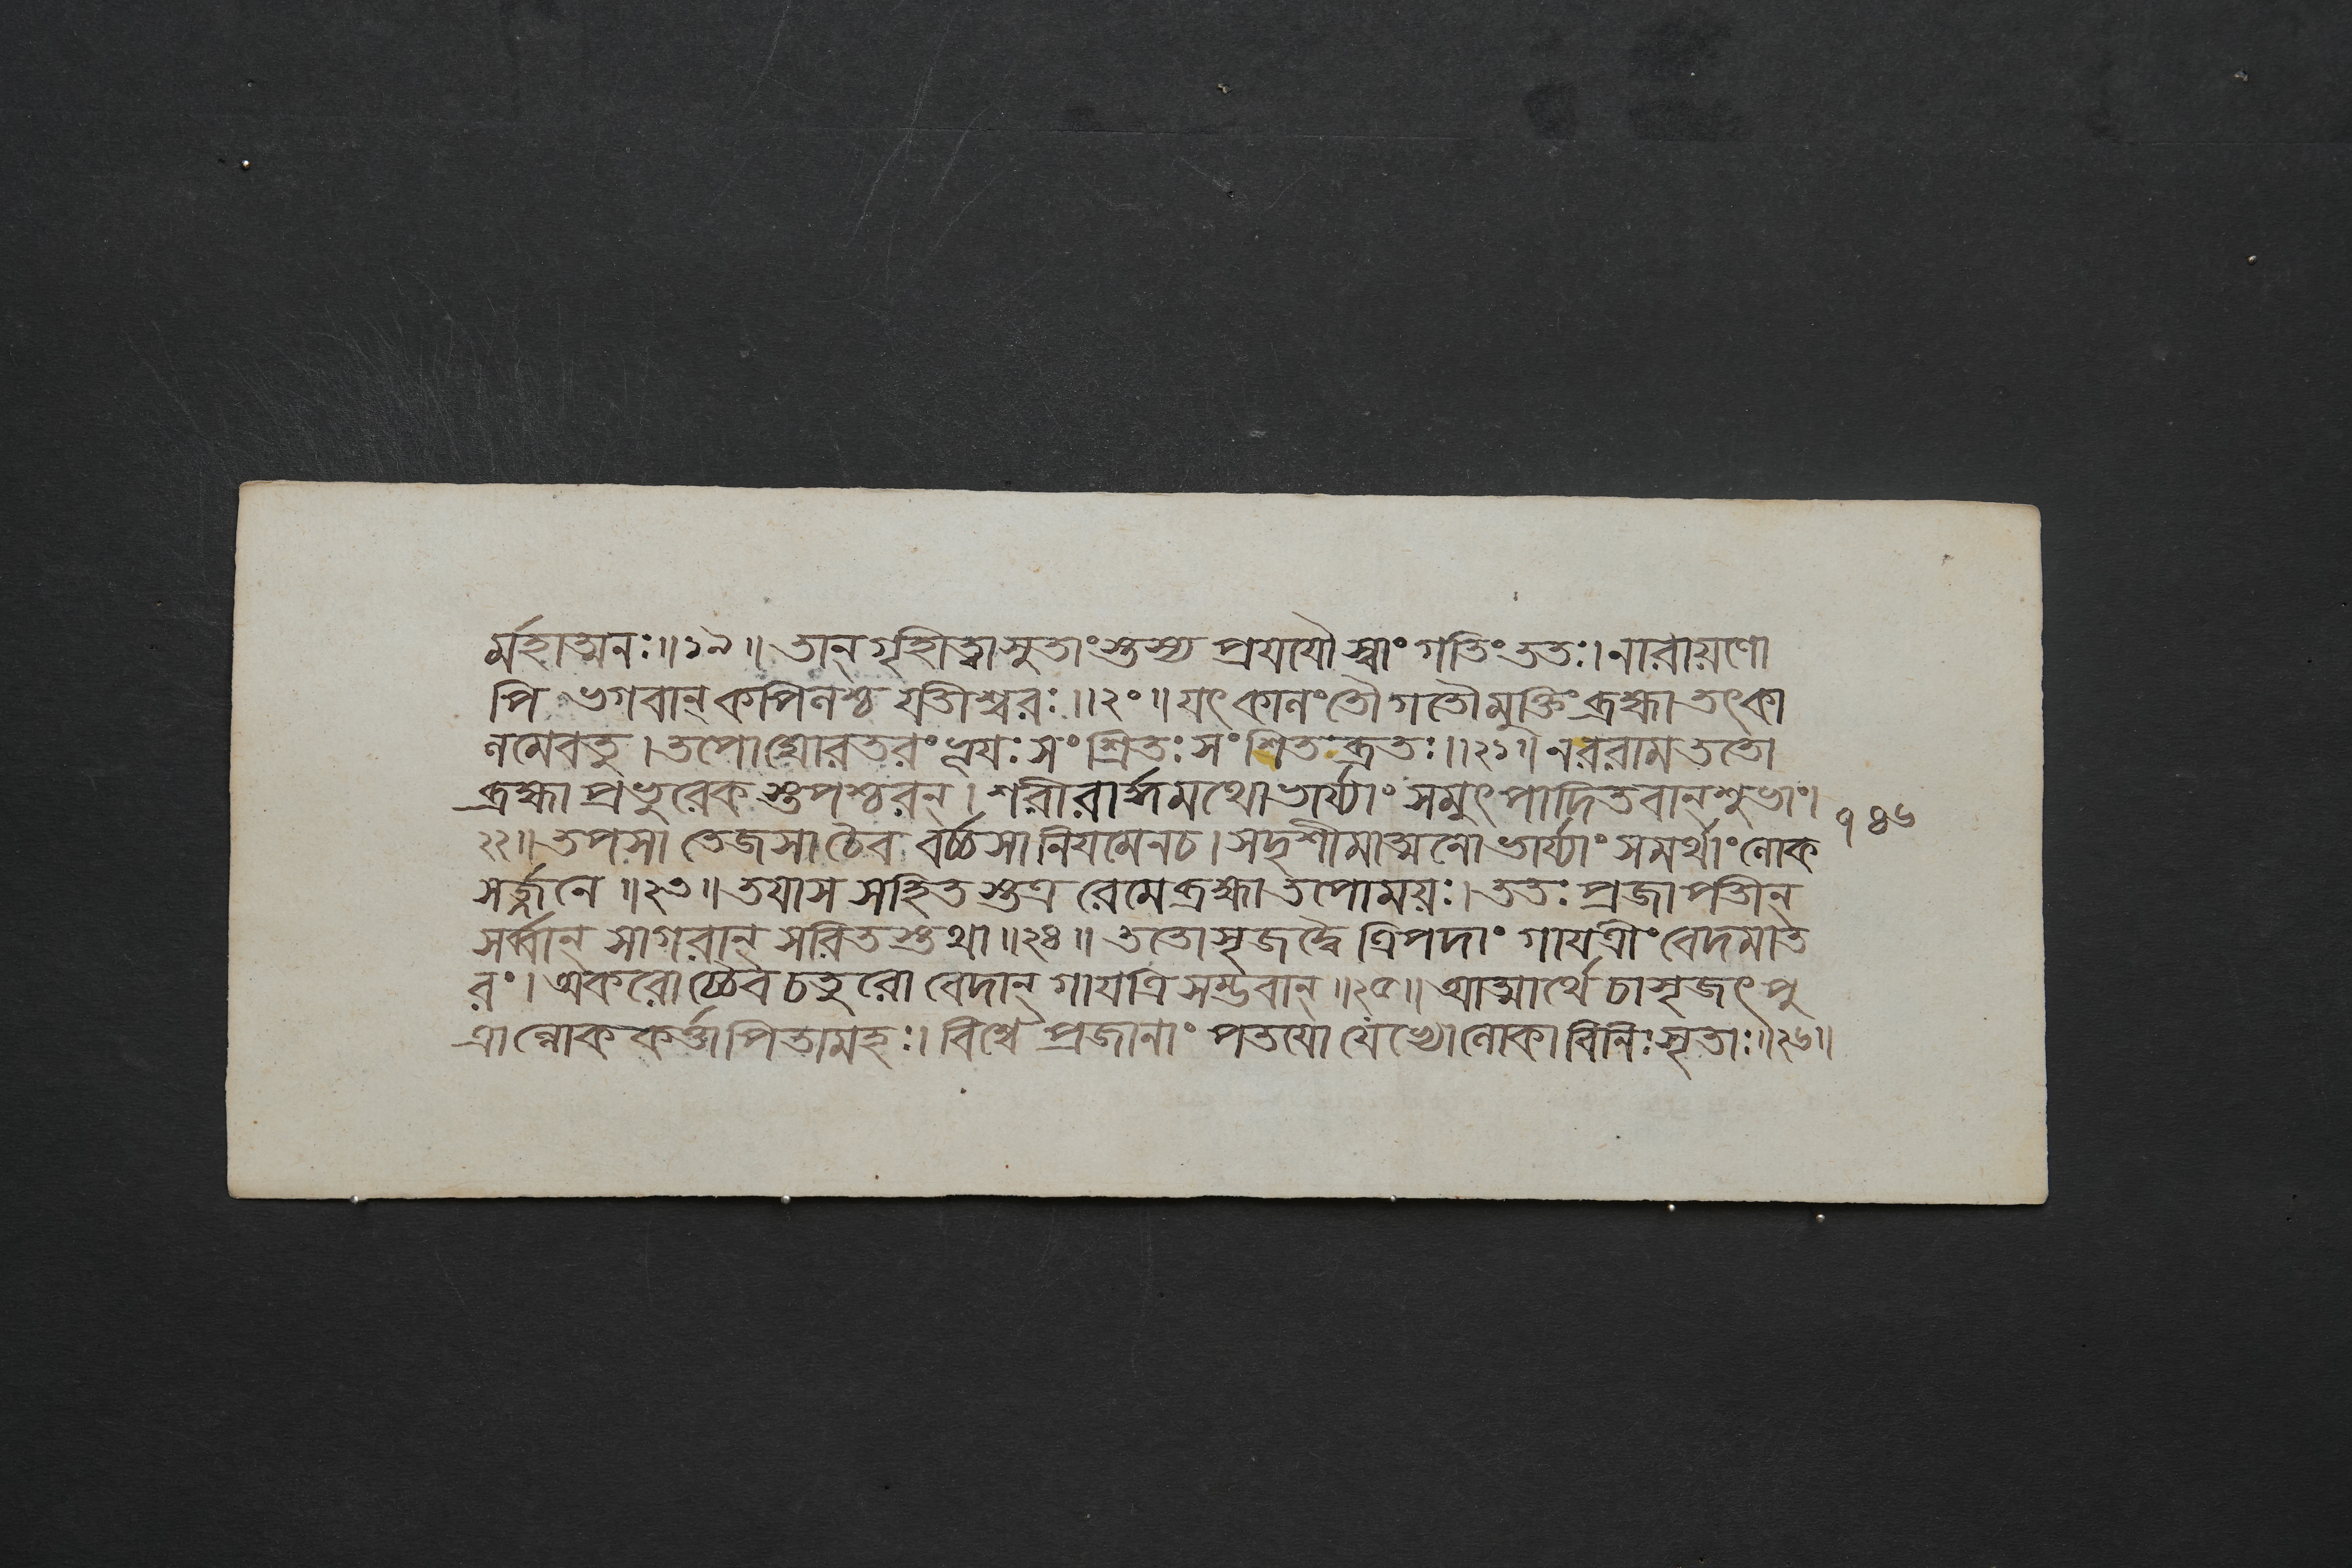 র্মহাত্মনঃ॥১৯॥ তান্ গৃহিত্বা সুতাংস্তস্য প্রযযৌ স্বাং গতিং ততঃ। নারায়ণো
পি ভগবান্ কপিনশ্চ যতীশ্বরঃ॥২০॥ যৎ কানং তৌ গতৌ মুক্তিং ব্রহ্মা তৎকা
নমেবতু। তপো ঘোরতরং ভূযঃ সংশ্রিতঃ সংশিতব্রতঃ॥২১॥ নররাম ততো
ব্রহ্মা প্রভুরেকস্তপশ্চরন্। শরীরার্দ্ধমথো ভার্য্যাং সমুৎপাদিতবান্ শুভাং।
২২॥ তপসা তেজসা চৈব বর্চ্চসা নিযমেন চ। সদৃশীমাত্মনো ভার্য্যাং সমর্থাং নোক
সর্জ্জনে॥২৩॥ তযা স সহিতস্তত্র রেমে ব্রহ্মা তপোময়ঃ। ততঃ প্রজাপতীন্
সর্ব্বান্ সাগরান্ সরিতস্তথা॥২৪॥ ততোসৃজদ্বৈ ত্রিপদাং গাযত্রীং বেদমাত
রং। অকরোচ্চৈব চতুরো বেদান্ গাযত্রিসম্ভবান্॥২৫॥ আত্মার্থে চাসৃজৎ পু
ত্রান্নোককর্ত্তা পিতামহঃ। বিশ্বে প্রজানাং পতযো যেভ্যো নোকা বিনিঃসৃতাঃ॥২৬॥
১৪৬